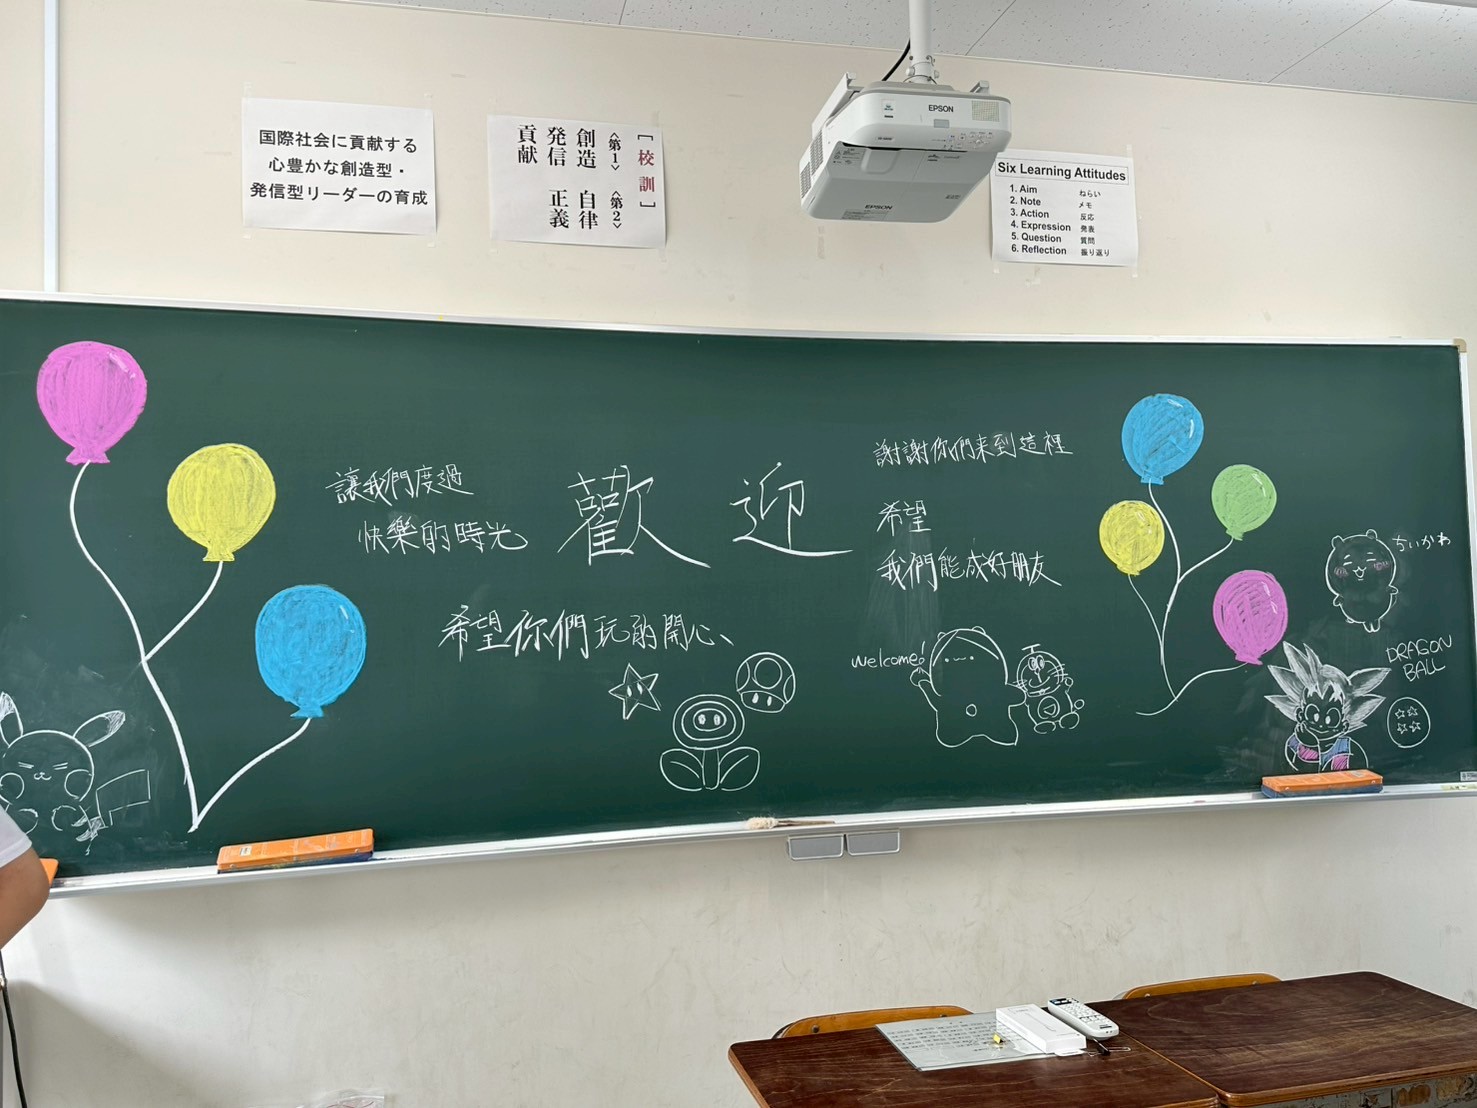 国際社会に貢献する
心豊かな創造型・
発信型リーダーの育成
[校訓]
〈第1〉 〈第2〉
創造 自律
発信 正義
貢献
EPSON
EPSON
Six Learning Attitudes
1. Aim ねらい
2. Note メモ
3. Action 反応
4. Expression 発表
5. Question 質問
6. Reflection 振り返り
讓我們度過
快樂的時光
歡迎
希望你們玩的開心、
謝謝你們来到這裡
希望
我們能成好朋友
welcome!
ちいかわ
DRAGON
BALL